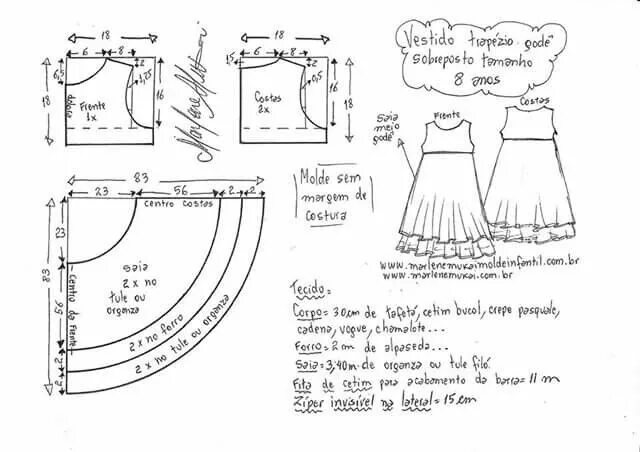 18
6
8
2
6,5
1,25
18
16
dobra
Frente
1x
18
6
8
1,5
2
0,5
16
18
Costas
2x
Vestido trapézio godê
sobreposto tamanho
8 anos
Frente
Costas
Saia
meio
godê
Molde sem
margem de
costura
83
23
56
2
2
centro costas
23
83
56
2
2
Centro da Frente
Saia
2x no
tule ou
organza
2x no forro
2x no tule ou organza
www.marlenemukaimoldeinfantil.com.br
www.marlenemukai.com.br
Tecido=
Corpo= 30cm de tafetá, cetim bucol, crepe pasquale,
cadena, vogue, chamalote...
Forro= 2 cm de alpaseda...
Saia= 3,40m de organza ou tule filó.
Fita de cetim para acabamento da barra= 11 m
Zíper invisível na lateral= 15 cm